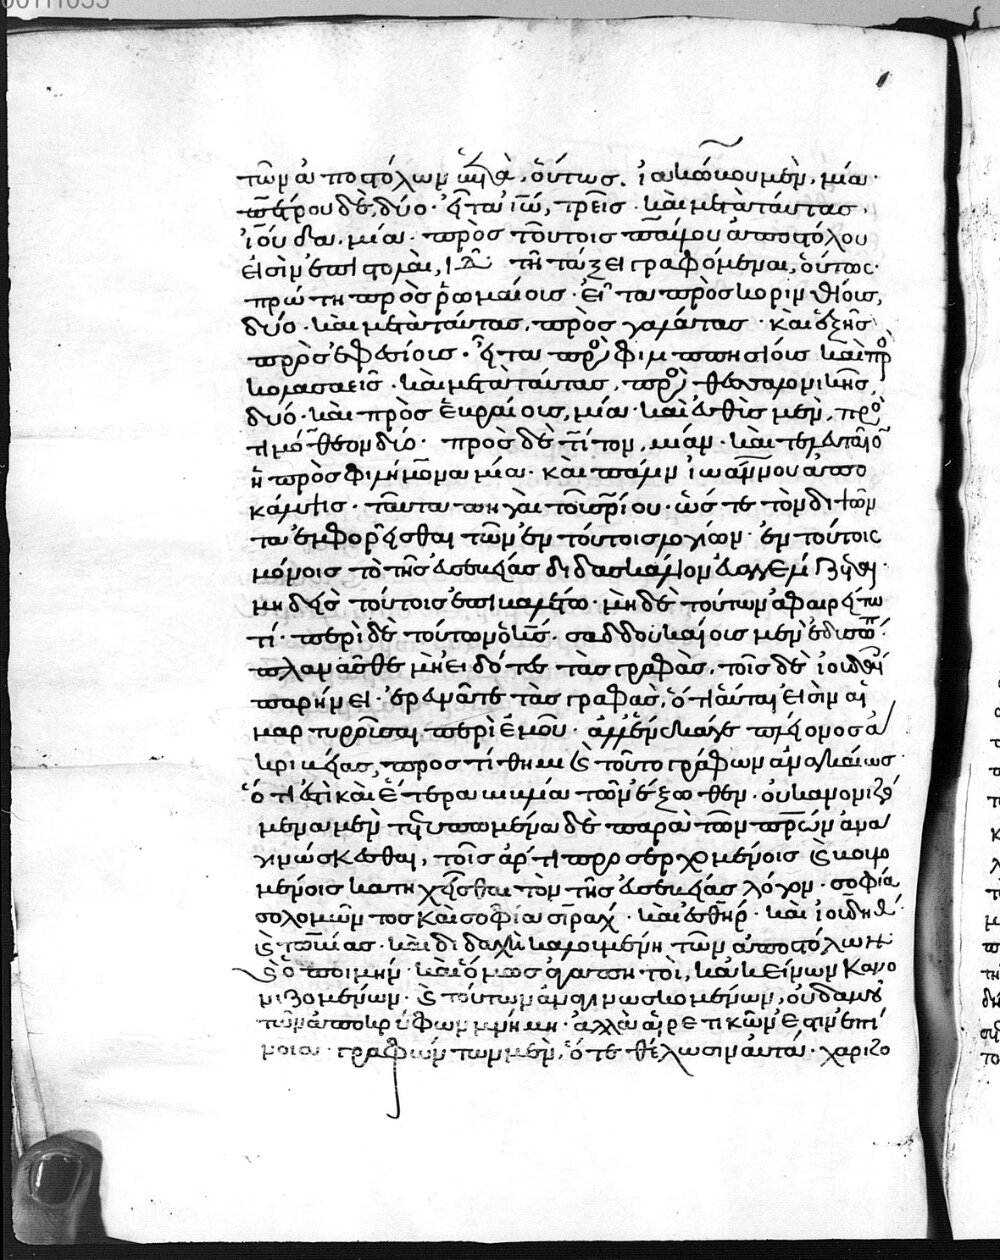 τῶν ἀποστόλων ἑπτὰ· οὕτως. ἰακώβου μὲν, μία·
πέτρου δὲ, δύο· εἶτα ἰω, τρεῖς· καὶ μετὰ ταύτας,
ἰούδα, μία· πρὸς τούτοις παύλου ἀποστόλου
εἰσὶν ἐπιστολαὶ, ΙΔ τῆ τάξει γραφόμεναι, οὕτως·
πρώτη πρὸς ῥωμαίους· εἶτα πρὸς κορινθίους,
δύο· καὶ μετὰ ταύτας, πρὸς γαλάτας· καὶ ἑξῆς
πρὸς ἐφεσίους· εἶτα πρὸ φιλιππησίους καὶ πρὸ
κολασαεῖς· καὶ μετὰ ταύτας, πρὸ θεσαλονικεῖς,
δύο· καὶ πρὸς ἑβραίους, μία· καὶ εὐθὺς μὲν, πρὸ
τιμόθεον δύο· πρὸς δὲ τίτον, μίαν· καὶ τελευταῖο
ἡ πρὸς φιλήμονα μία· καὶ πάλιν ἰωάννου ἀπο
κάλυψις· ταῦτα πηγαὶ τοῦ σρίου· ὥστε τὸν διψῶν
τα ἐμφορεῖσθαι τῶν ἐν τούτοις λογίων· ἐν τούτοις
μόνοις τὸ τῆς εὐσεβείας διδασκαλίον εὐαγγελίζεται·
μηδεὶς τούτοις ἐπιβαλέτω· μὴ δὲ τούτων ἀφαιρείτω
τί· περὶ δὲ τούτων ὁ κς. σαδδουκαίοις μὲν ἐδυσώπ·
πλανᾶσθε μὴ εἰδότες τὰς γραφὰς. τοῖς δὲ ἰουδαί
παρήνει· ἐρευνᾶτε τὰς γραφὰς, ὅτι αὗται εἰσὶν αἱ
μαρτυροῦσαι περὶ ἐμοῦ· ἀλλ' ἕνεκά γε πλείονος ἀ
κριβείας, προστίθημι καὶ τοῦτο γράφων ἀναγκαίως·
ὅτι ἐστὶ καὶ ἕτερα βιβλία τῶν ἔξωθεν· οὐ κανονιζό
μενα μὲν τετυπωμένα δὲ παρὰ τῶν πρων ἀνα
γινώσκεσθαι, τοῖς ἄρτι προσερχομένοις καὶ βουλο
μένοις κατηχεῖσθαι τὸν τῆς εὐσεβείας λόγον· σοφία
σολομῶντος καὶ σοφία σιραχ· καὶ ἐσθὴρ· καὶ ἰουδὴθ·
καὶ τωβίας· καὶ διδαχὴ καλουμένη τῶν ἀποστόλων
καὶ ὁ ποιμήν· καὶ ὅμως ἀγαπητοὶ, κἀκείνων κανο
νιζομένων· καὶ τούτων ἀναγινωσκομένων, οὐδαμοῦ
τῶν ἀποκρύφων μνήμη· ἀλλὰ αἱρετικῶν ἐστιν ἐπί
νοια· γραφόντων μὲν, ὅτε θέλωσιν αὐτά· χαριζο